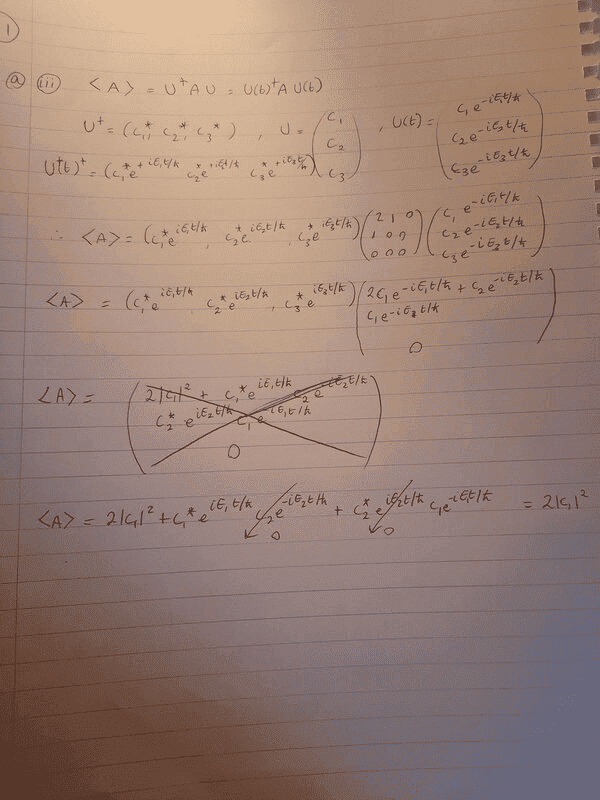 1
(a) (iii) <A> = U†AU = U(t)†A U(t)
U† = (c₁* c₂* c₃*) , U = (c₁ c₂ c₃) , U(t) = (c₁e^{-iE₁t/ħ} c₂e^{-iE₂t/ħ} c₃e^{-iE₃t/ħ})
U(t)† = (c₁*e^{+iE₁t/ħ} c₂*e^{+iE₂t/ħ} c₃*e^{+iE₃t/ħ})
∴ <A> = (c₁*e^{iE₁t/ħ}, c₂*e^{iE₂t/ħ}, c₃*e^{iE₃t/ħ}) (2 1 0 1 0 0 0 0 0) (c₁e^{-iE₁t/ħ} c₂e^{-iE₂t/ħ} c₃e^{-iE₃t/ħ})
<A> = (c₁*e^{iE₁t/ħ}, c₂*e^{iE₂t/ħ}, c₃*e^{iE₃t/ħ}) (2c₁e^{-iE₁t/ħ} + c₂e^{-iE₂t/ħ}
c₁e^{-iE₃t/ħ}
0)
<A> = (2|c₁|² + c₁*e^{iE₁t/ħ} c₂e^{-iE₂t/ħ}
c₂*e^{iE₂t/ħ} c₁e^{-iE₁t/ħ}
0)
<A> = 2|c₁|² + c₁*e^{iE₁t/ħ} c₂e^{-iE₂t/ħ} + c₂*e^{iE₂t/ħ} c₁e^{-iE₁t/ħ} = 2|c₁|²
0 0